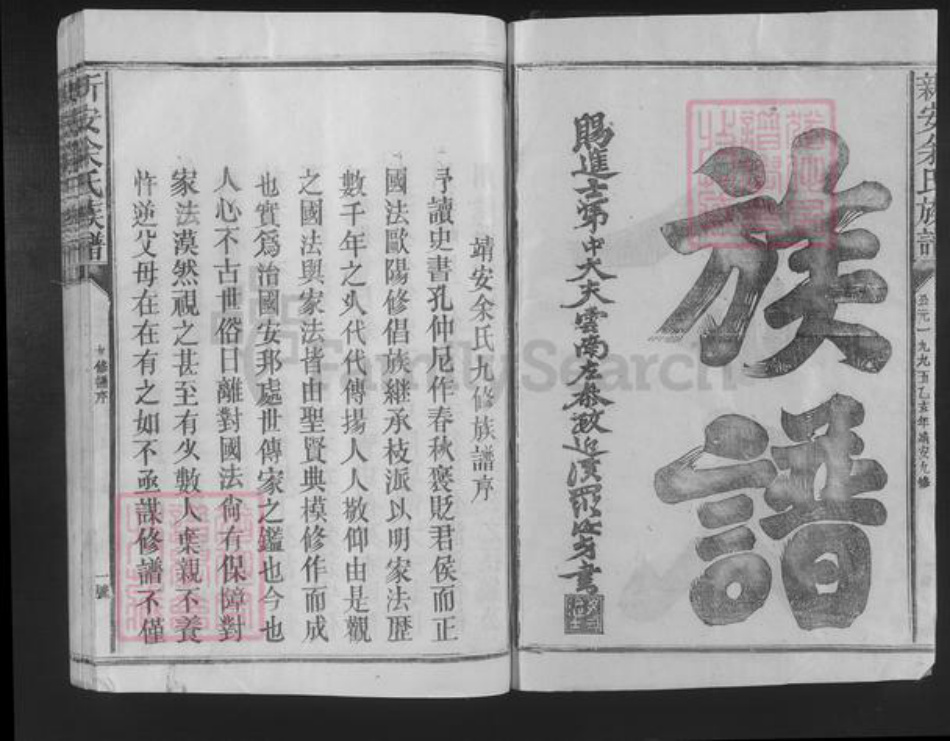 新安余氏族譜
公元一九九五乙亥年靖安九修
族譜
賜進士第中大夫雲南左參政
靖安余氏九修族譜序
予讀史書孔仲尼作春秋褒貶君侯而正
國法歐陽修倡族繼承枝派以明家法歷
數千年之久代代傳揚人人敬仰由是觀
之國法與家法皆由聖賢典模修作而成
也實爲治國安邦處世傳家之鑑也今也
人心不古世俗日離對國法尙有保障對
家法漠然視之甚至有少數人棄親不養
忤逆父母在在有之如不亟謀修譜不僅
新安余氏族譜
修譜序
一號
FamilySearch